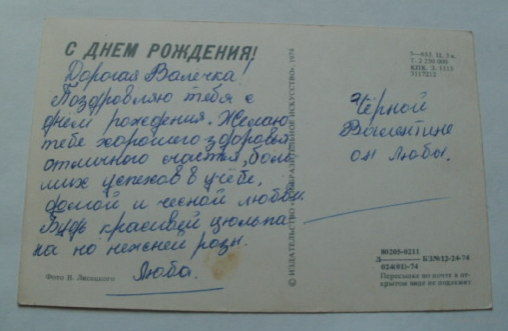 С ДНЕМ РОЖДЕНИЯ!
Дорогая Валечка!
Поздровляю тебя с
днём рождения. Желаю
тебе хорошего здоровья
отличного счастья, боль
ших успехов в учёбе,
долгой и чесной любви.
Будь красивей цюльпа
на но нежней розы.
Люба.
Фото В. Лисецкого
© ИЗДАТЕЛЬСТВО «ИЗОБРАЗИТЕЛЬНОЕ ИСКУССТВО». 1974
5—653. Ц. 3 к.
Т. 2 250 000
КПК. З. 1113
3117212
Чёрной
Валентине
от Любы.
80205-0211
Д— БЗ№12-24-74
024(01)-74
Пересылке по почте в от-
крытом виде не подлежит